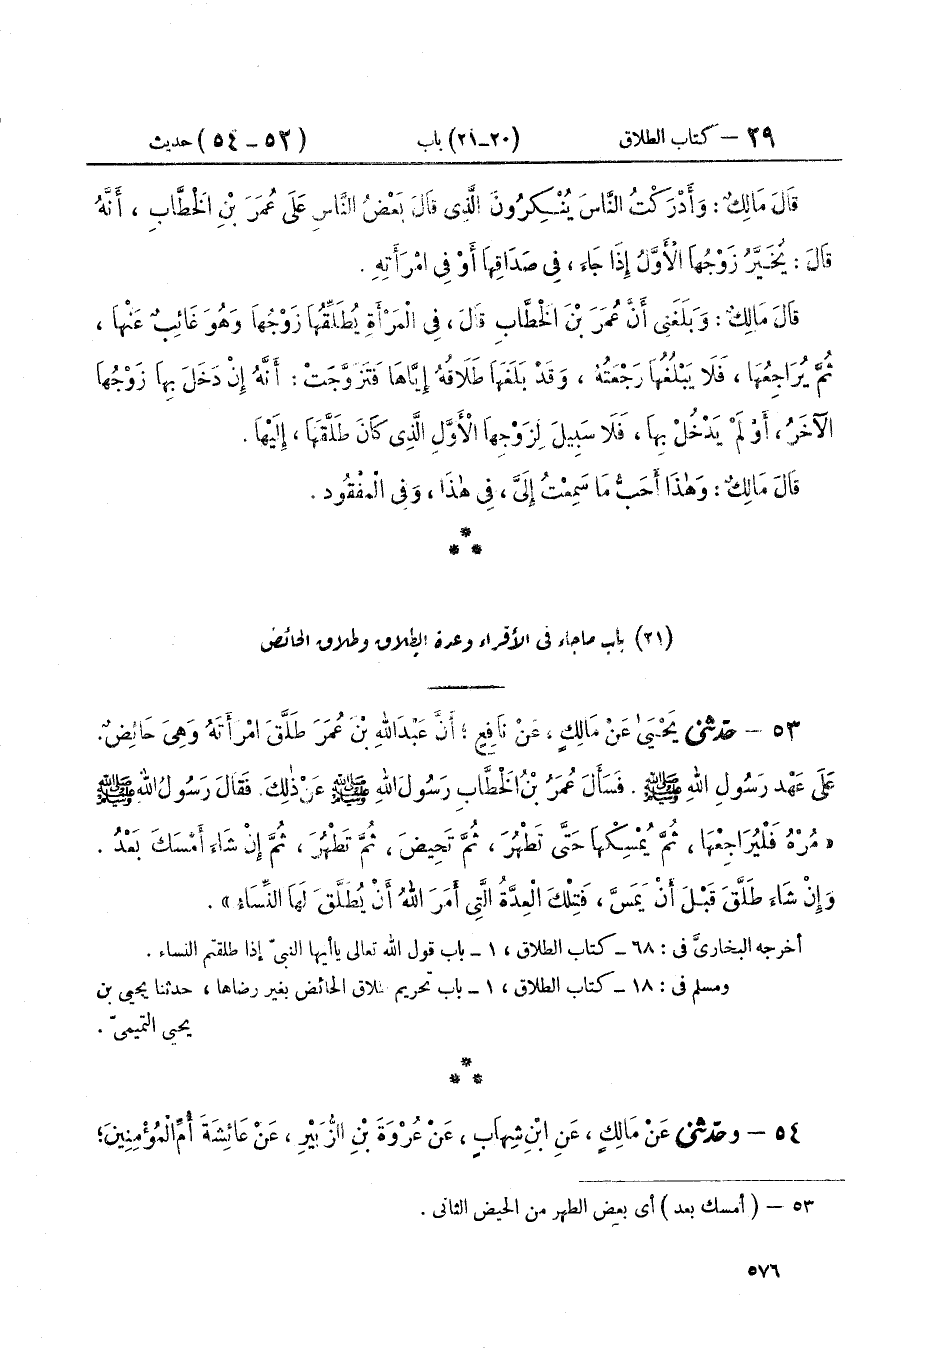 ٢٩ – كتاب الطلاق (٢٠-٢١) باب (٥٣ – ٥٤) حديث
قَالَ مَالِكٌ : وَأَدْرَكْتُ النَّاسَ يُنْكِرُونَ الَّذِى قَالَ بَعْضُ النَّاسِ عَلَى عُمَرَ بْنِ الْخَطَّابِ ، أَنَّهُ
قَالَ : يُخَيَّرُ زَوْجُهَا الْأَوَّلُ إِذَا جَاءَ ، فِى صَدَاقِهَا أَوْ فِى امْرَأَتِهِ .
قَالَ مَالِكٌ : وَبَلَغَنِى أَنَّ عُمَرَ بْنَ الْخَطَّابِ قَالَ ، فِى الْمَرْأَةِ يُطَلِّقُهَا زَوْجُهَا وَهُوَ غَائِبٌ عَنْهَا ،
ثُمَّ يُرَاجِعُهَا ، فَلَا يَبْلُغُهَا رَجْعَتُهُ ، وَقَدْ بَلَغَهَا طَلَاقُهُ إِيَّاهَا فَتَزَوَّجَتْ : أَنَّهُ إِنْ دَخَلَ بِهَا زَوْجُهَا
الْآخَرُ ، أَوْ لَمْ يَدْخُلْ بِهَا ، فَلَا سَبِيلَ لِزَوْجِهَا الْأَوَّلِ الَّذِى كَانَ طَلَّقَهَا ، إِلَيْهَا .
قَالَ مَالِكٌ : وَهٰذَا أَحَبُّ مَا سَمِعْتُ إِلَىَّ ، فِى هٰذَا ، وَفِى الْمَفْقُودِ .
*
* *
(٢١) باب ماجاء فى الأقراء وعدة الطلاق وطلاق الحائض
٥٣ – حَدَّثَنِى يَحْيَىٰ عَنْ مَالِكٍ ، عَنْ نَافِعٍ ؛ أَنَّ عَبْدَاللهِ بْنَ عُمَرَ طَلَّقَ امْرَأَتَهُ وَهِىَ حَائِضٌ.
عَلَى عَهْدِ رَسُولِ اللهِ ﷺ . فَسَأَلَ عُمَرُ بْنُ الْخَطَّابِ رَسُولَ اللهِ ﷺ عَنْ ذٰلِكَ. فَقَالَ رَسُولُ اللهِ ﷺ
« مُرْهُ فَلْيُرَاجِعْهَا ، ثُمَّ يُمْسِكْهَا حَتَّى تَطْهُرَ ، ثُمَّ تَحِيضَ ، ثُمَّ تَطْهُرَ ، ثُمَّ إِنْ شَاءَ أَمْسَكَ بَعْدُ .
وَإِنْ شَاءَ طَلَّقَ قَبْلَ أَنْ يَمَسَّ ، فَتِلْكَ الْعِدَّةُ الَّتِى أَمَرَ اللهُ أَنْ يُطَلَّقَ لَهَا النِّسَاءُ » .
أخرجه البخارىّ فى : ٦٨ – كتاب الطلاق ، ١ – باب قول الله تعالى ياأيها النبىّ إذا طلقتم النساء .
ومسلم فى : ١٨ – كتاب الطلاق ، ١ – باب تحريم طلاق الحائض بغير رضاها ، حدثنا يحيى بن
يحيى التميمىّ .
*
* *
٥٤ – وحَدَّثَنِى عَنْ مَالِكٍ ، عَنِ ابْنِ شِهَابٍ ، عَنْ عُرْوَةَ بْنِ الزُّبَيْرِ ، عَنْ عَائِشَةَ أُمِّ الْمُؤْمِنِينَ ؛
٥٣ – ( أمسك بعد ) أى بعض الطهر من الحيض الثانى .
٥٧٦